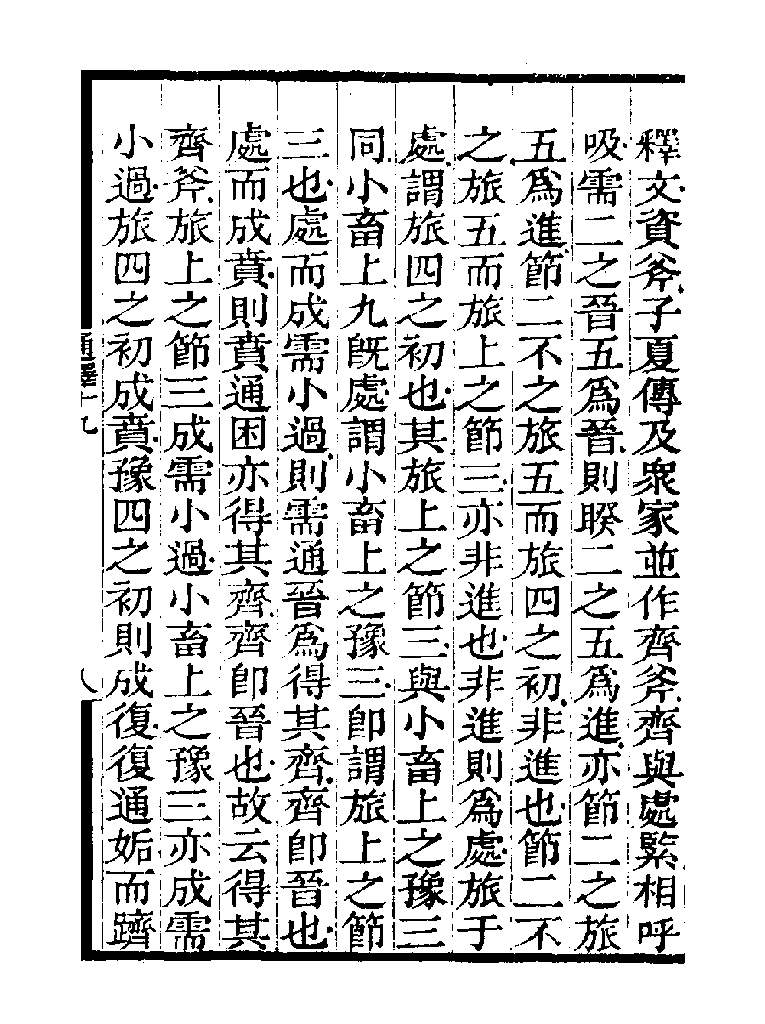 釋文資斧子夏傳及衆家並作齊斧齊與處緊相呼
吸需二之晉五爲晉則睽二之五爲進亦節二之旅
五爲進節二不之旅五而旅四之初非進也節二不
之旅五而旅上之節三亦非進也非進則爲處旅于
處謂旅四之初也其旅上之節三與小畜上之豫三
同小畜上九旣處謂小畜上之豫三卽謂旅上之節
三也處而成需小過則需通晉爲得其齊齊卽晉也
處而成賁則賁通困亦得其齊齊卽晉也故云得其
齊斧旅上之節三成需小過小畜上之豫三亦成需
小過旅四之初成賁豫四之初則成復復通姤而躋
通釋十九
八